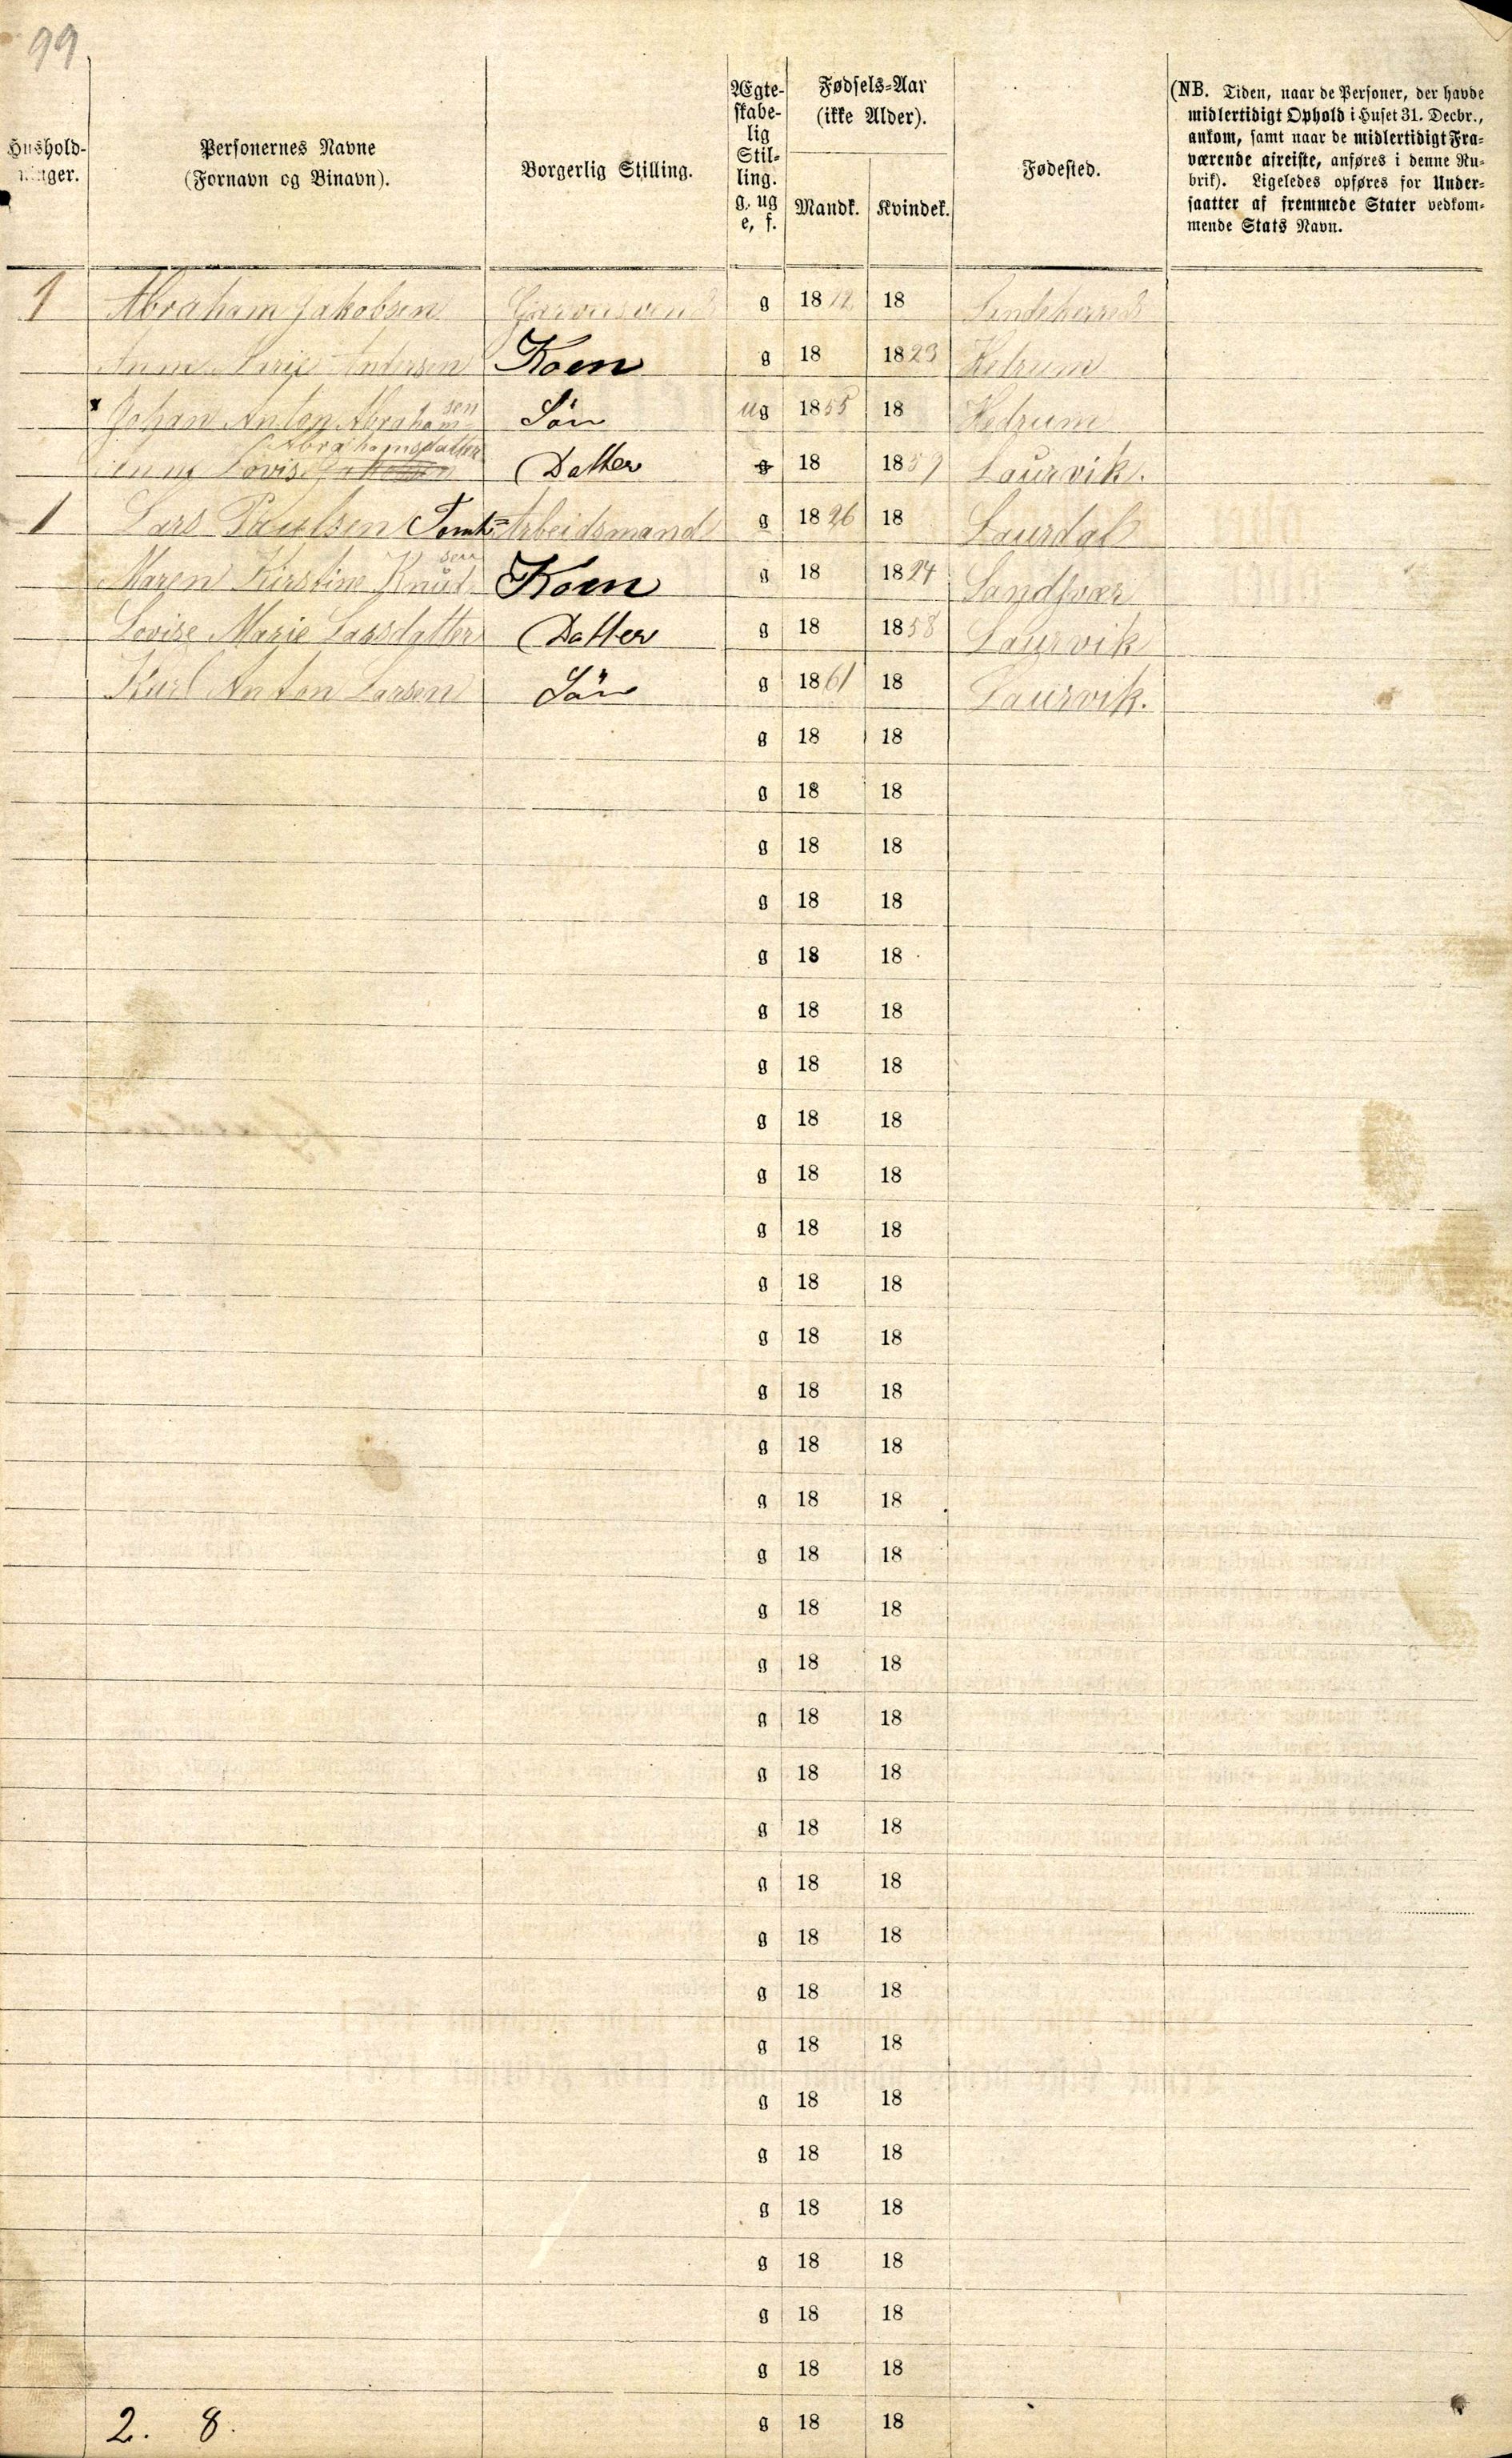 99
Hushold-
ninger.
Personernes Navne
(Fornavn og Binavn).
Borgerlig Stilling.
Ægte-
skabe-
lig
Stil-
ling.
g, ug
e, f.
Fødsels-Aar
(ikke Alder).
Mandk.
Kvindek.
Fødested.
(NB. Tiden, naar de Personer, der havde
midlertidigt Ophold i Huset 31. Decbr.,
ankom, samt naar de midlertidigt Fra-
værende afreiste, anføres i denne Ru-
brik). Ligeledes opføres for Under-
saatter af fremmede Stater vedkom-
mende Stats Navn.
1 Abraham Jakobsen g 1812 18
Andersen Koen g 18 1823 Hedrum
sen
Johan Anton Abraham Sön ug 1855 18 Hedrum
Abrahamsdatter
Lovise Datter g 18 1859 Laurvik.
1 Lars Paulsen Tomt= Arbeidsmand g 1826 18 Laurdal
sen
Maren Kirstine Knud Koen g 18 1824 Sandsvær
Lovise Marie Larsdatter Datter g 18 1858 Laurvik
Karl Anton Larsen Sön g 1861 18 Laurvik.
g 18 18
g 18 18
g 18 18
g 18 18
g 18 18
g 18 18
g 18 18
g 18 18
g 18 18
g 18 18
g 18 18
g 18 18
g 18 18
g 18 18
g 18 18
g 18 18
g 18 18
g 18 18
g 18 18
g 18 18
g 18 18
g 18 18
g 18 18
g 18 18
g 18 18
g 18 18
g 18 18
g 18 18
g 18 18
g 18 18
g 18 18
2. 8. g 18 18